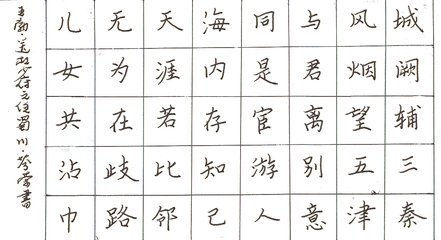 城阙辅三秦
风烟望五津
与君离别意
同是宦游人
海内存知己
天涯若比邻
无为在歧路
儿女共沾巾
王勃·送杜少府之任蜀川·書